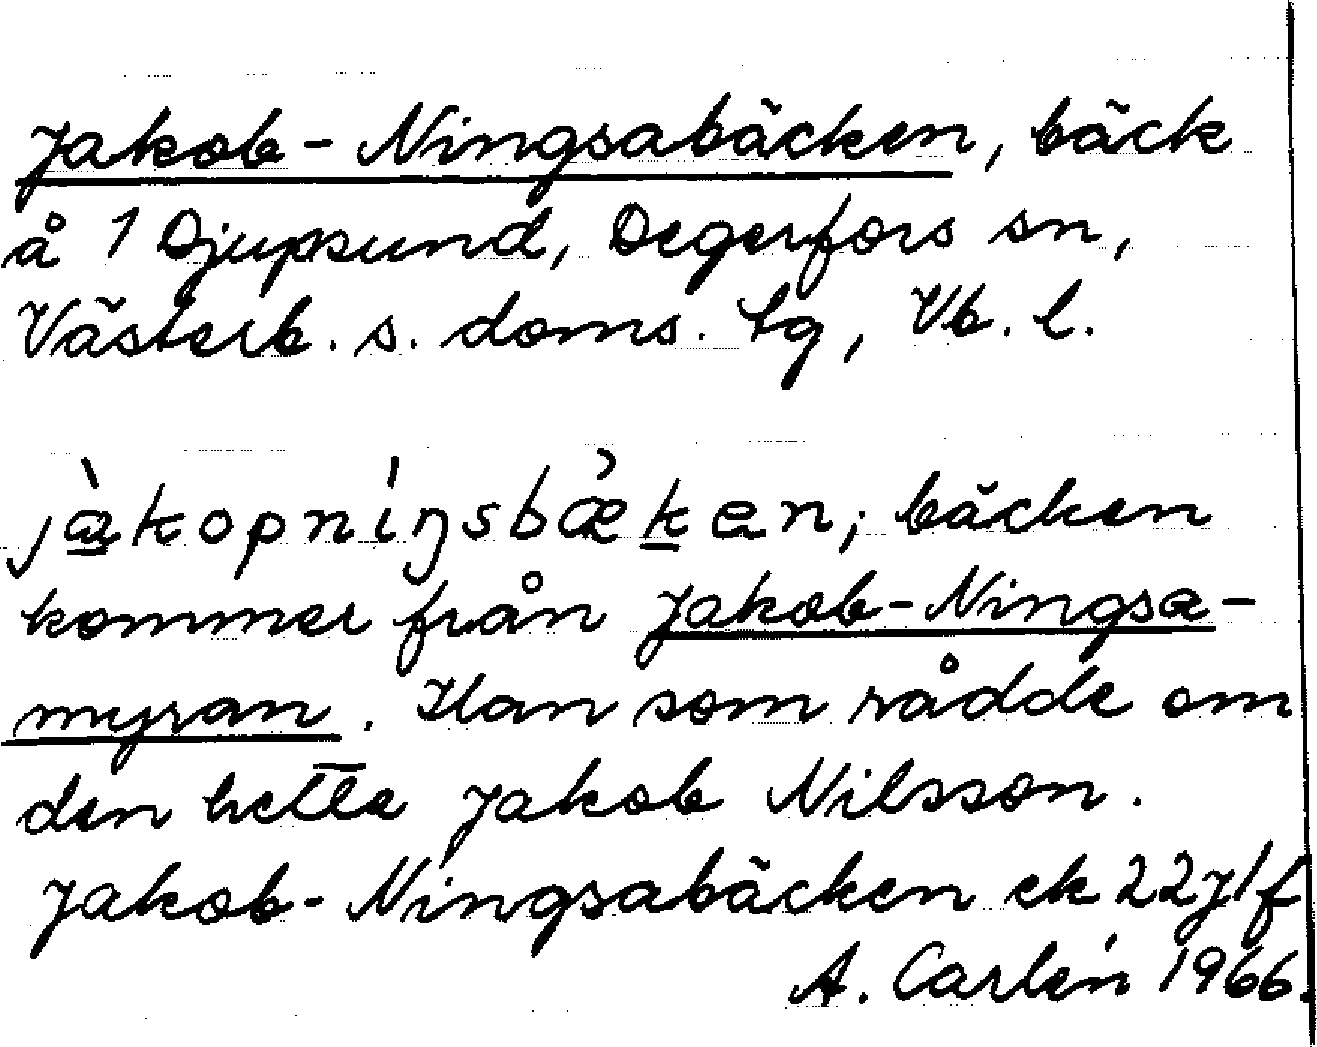 Jakob-Ningsabäcken, bäck
å 1 Djupsund, Degerfors sn,
Västerb. s. doms. tg, Vb. l.
jàkopníŋsbæ̀ken; bäcken
kommer från Jakob-Ningsa-
myran. Han som rådde om
den hette Jakob Nilsson.
Jakob-Ningsabäcken ek 22J1f
A. Carlén 1966.